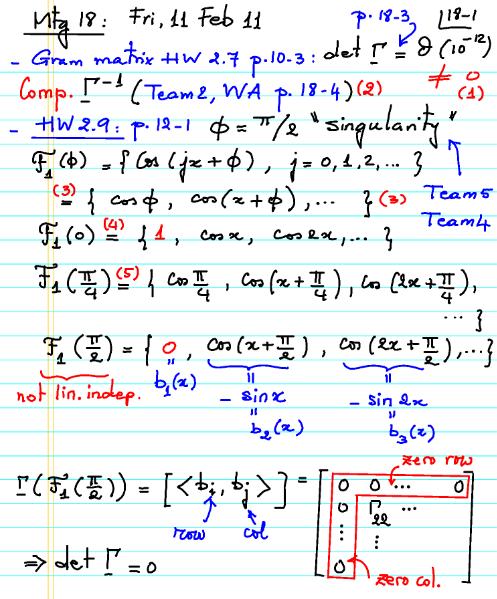 Mtg 18: Fri, 11 Feb 11
p. 18-3
18-1
- Gram matrix HW 2.7 p.10-3: det Γ = O(10^-12)
≠ 0
(1)
Comp. Γ^-1 (Team2, WA p. 18-4) (2)
- HW 2.9: p. 12-1 φ = π/2 "singularity"
F_1(φ) = { cos(jx+φ), j = 0, 1, 2, ... }
(3) = { cos φ, cos(x+φ), ... } (3)
Team5
Team4
F_1(0) (4) = { 1, cos x, cos 2x, ... }
F_1(π/4) (5) = { cos π/4, cos(x+π/4), cos(2x+π/4),
... }
F_1(π/2) = { 0, cos(x+π/2), cos(2x+π/2), ... }
not lin. indep.
= b_1(x)
= - sin x
= b_2(x)
= - sin 2x
= b_3(x)
zero row
Γ(F_1(π/2)) = [<b_i, b_j>] = [ 0 0 ... 0
row col
0 Γ_22 ...
⋮ ⋮
0 ]
⇒ det Γ = 0
zero col.